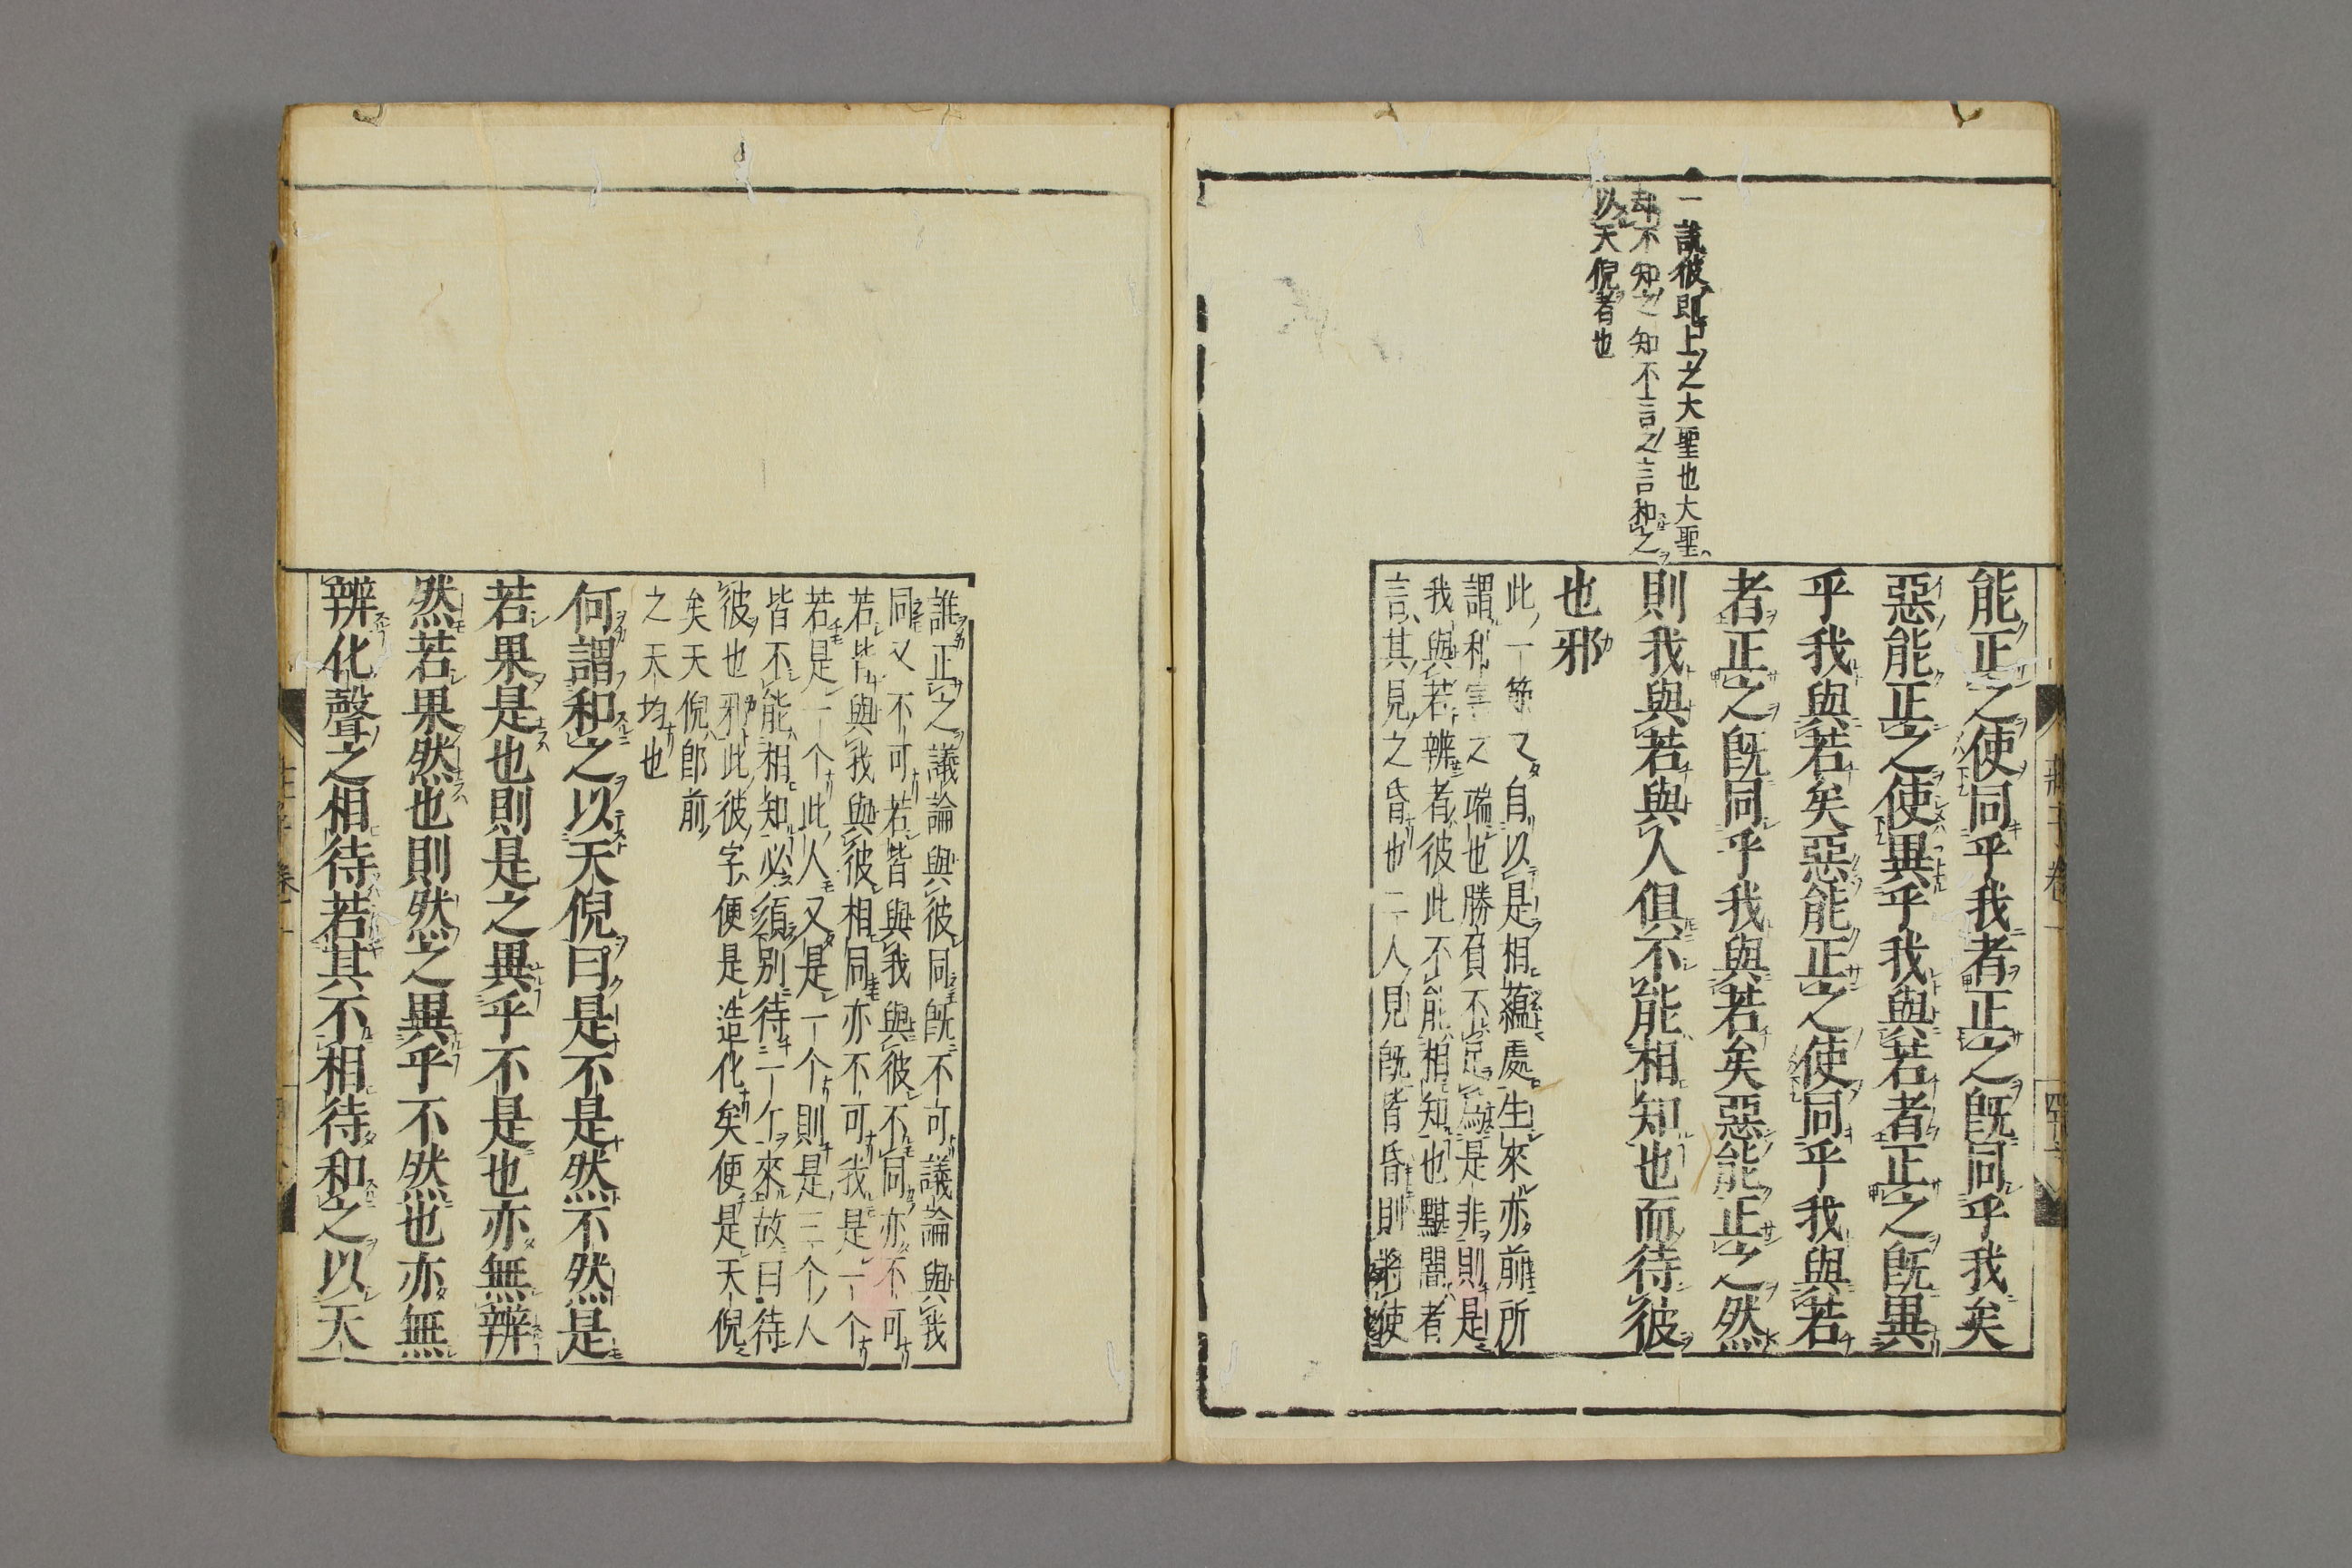 一說彼即上之大聖也大聖
却不知之知不言之言和之
以天倪者也
能正之使同乎我者正之既同乎我矣
惡能正之使異乎我與若者正之既異
乎我與若矣惡能正之使同乎我與若
者正之既同乎我與若矣惡能正之然
則我與若與人俱不能相知也而待彼
也邪
此一節又自以是相蘊處生來亦前所
謂利害之端也勝負不足爲是非則是
我與若辨者彼此不能相知也黮闇者
言其見之昏也二人見既皆昏則將使
誰正之議論與彼同既不可議論與我
同又不可若皆與我與彼不同亦不可
若皆與我與彼相同亦不可我是一个
若是一个此人又是一个則是三个人
皆不能相知必須別待一个來故曰待
彼也邪此彼字便是造化矣便是天倪
矣天倪卽前
之天均也
何謂和之以天倪曰是不是然不然是
若果是也則是之異乎不是也亦無辨
然若果然也則然之異乎不然也亦無
辨化聲之相待若其不相待和之以天